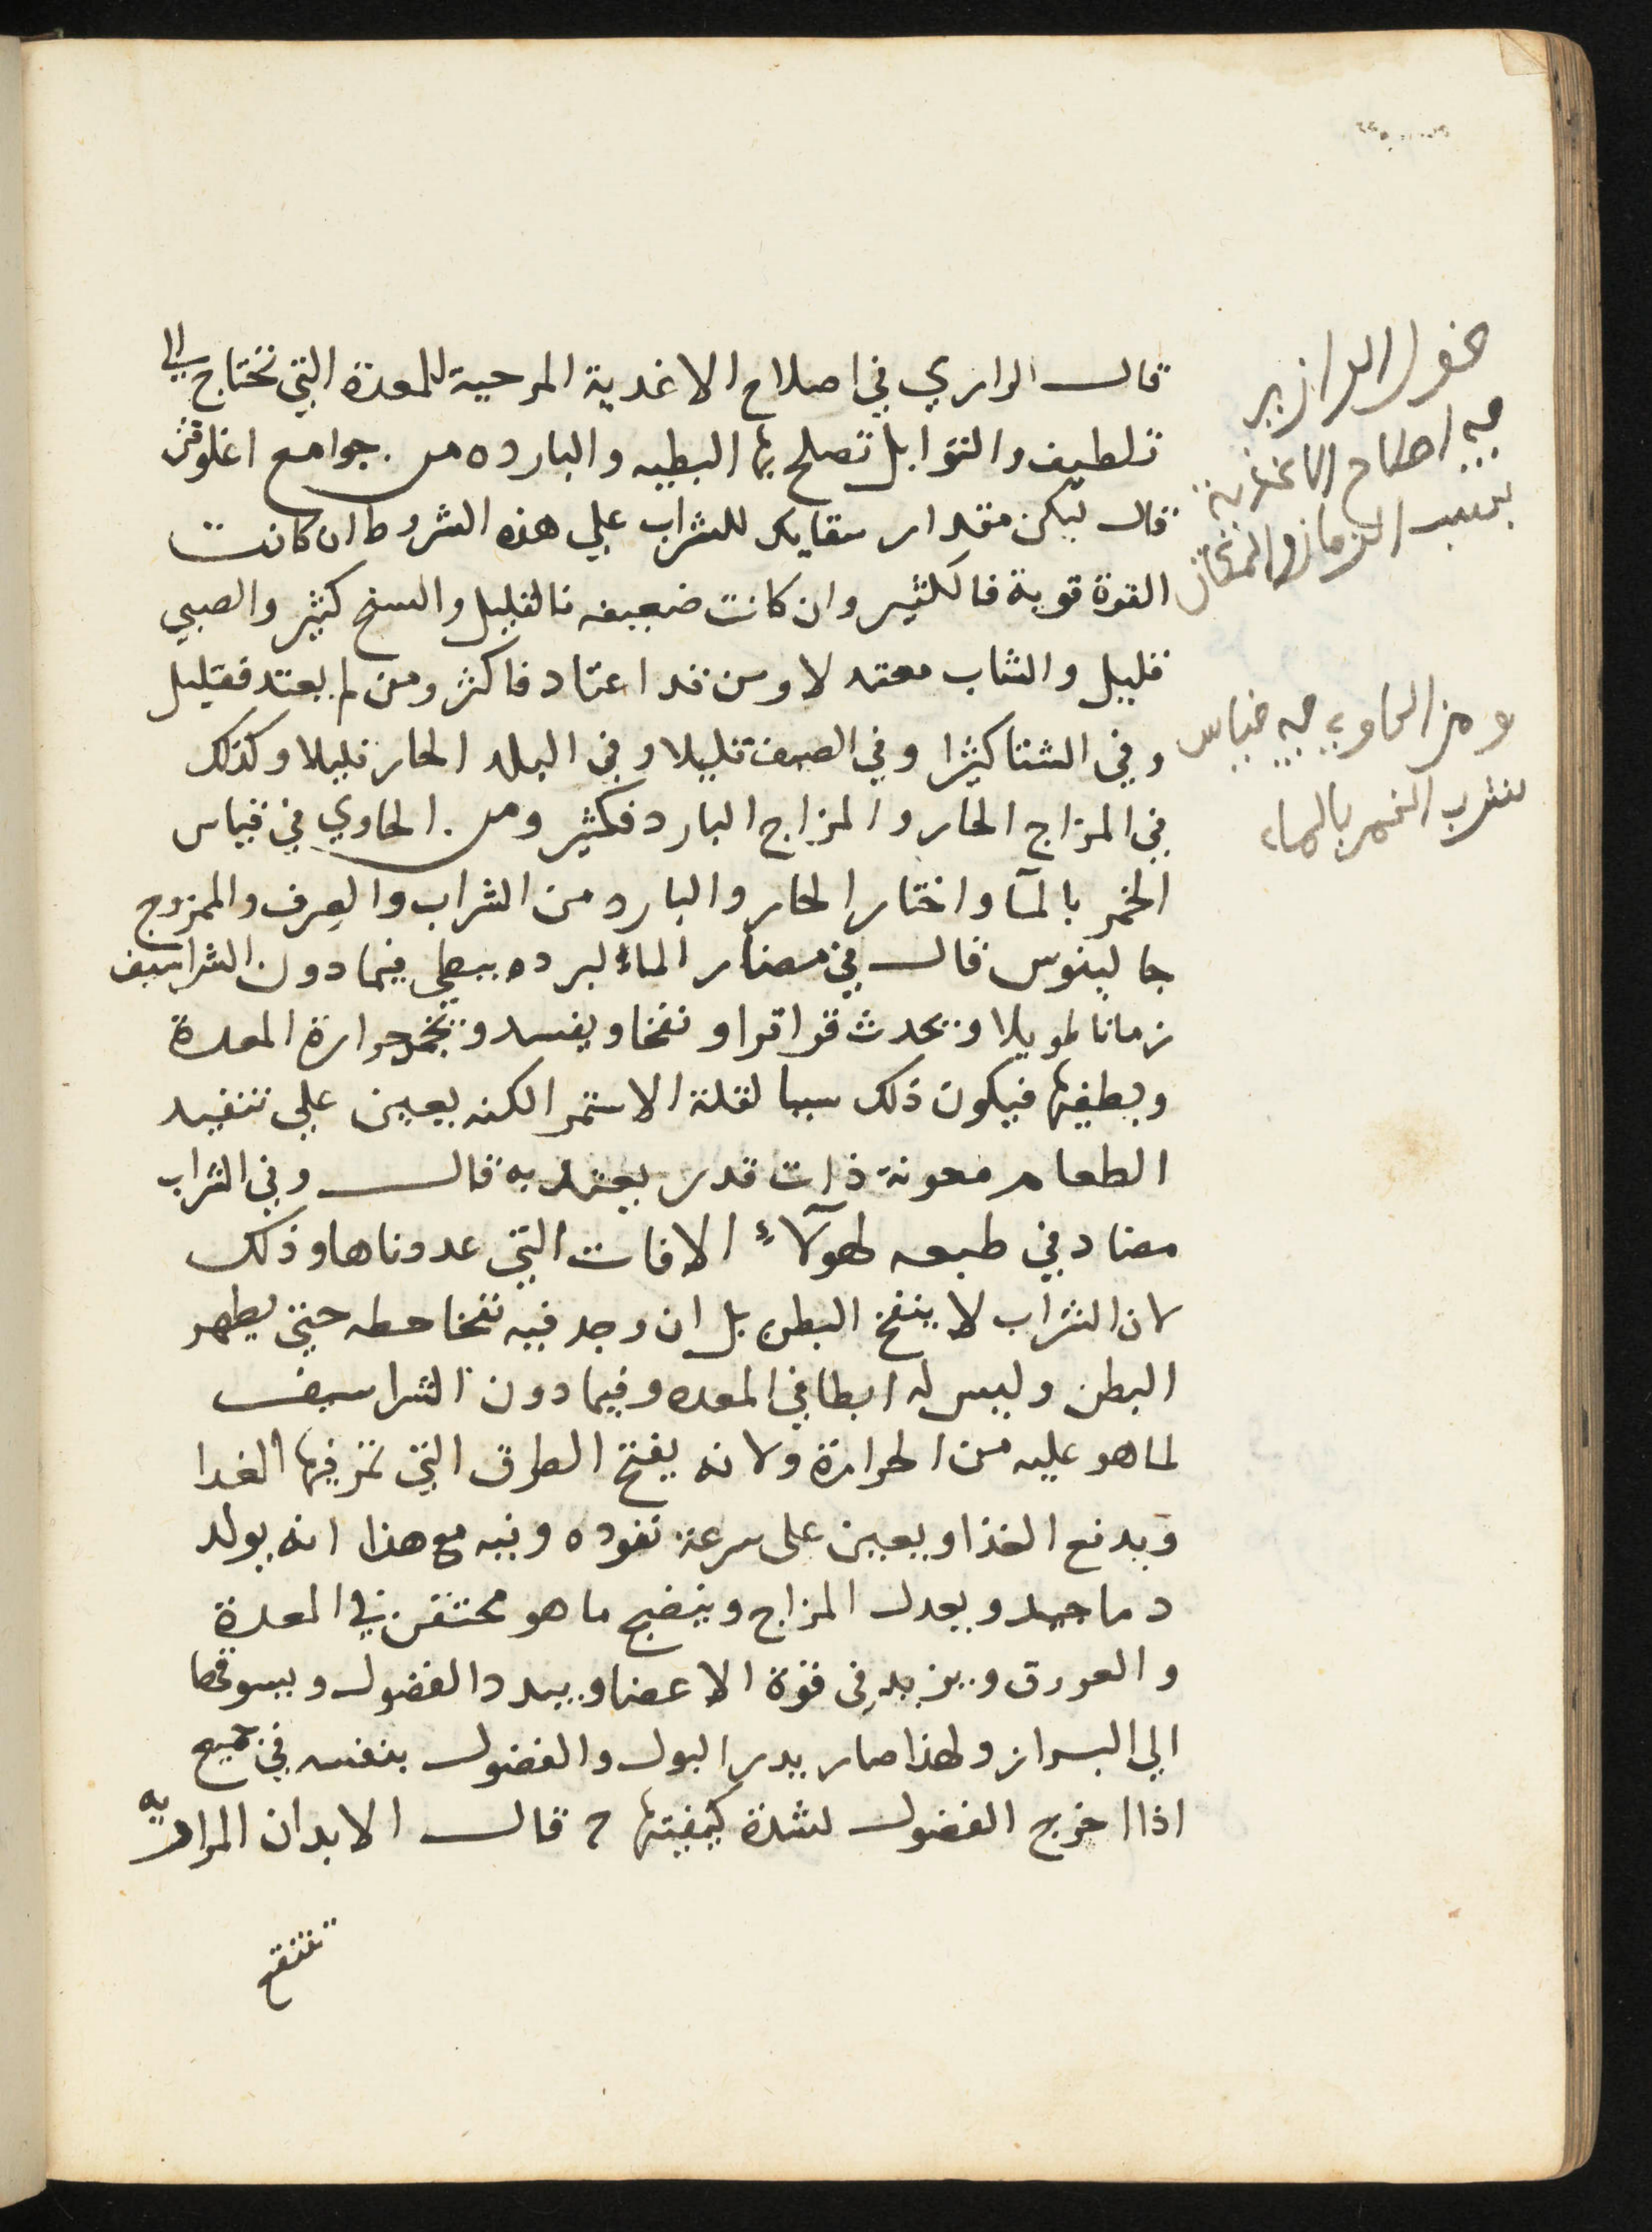 قال الرازي في اصلاح الاغدية المرحية للمعدة التي تختاج الي
تلطيف والتوابل تصلح بها البطيه والبارده من جوامع اغلوقن
قال ليكن مقدار سقايك للشراب علي هذه الشروط ان كانت
القوة قوية فالكثير وان كانت ضعيفه فالقليل والسخ كثير والصبي
قليل والشاب معتدلا ومن قد اعتاد فاكثر ومن لم يعتد فقليل
وفي الشتا كثيرا وفي الصيف قليلا وفي البلد الحار قليلا وكذلك
في المزاج الحار والمزاج البارد فكثير ومن الحاوي في قياس
الخمر بالمآ واختار الحار والبارد من الشراب والصرف والممزوج
جالينوس قال في مضار الماء لبرده يبطي فيما دون الشراسيف
زمانا طويلا ويحدث قراقرا ونفخا ويفسد حرارة المعدة
ويطفيها فيكون ذلك سببا لقلة الاستمرا لكنه يعين علي تنفيد
الطعام معونة ذات قدر يعتد به قال وفي الشراب
مضاد في طبعه لهولآء الافات التي عددناها وذلك
لان الشراب لا ينفخ البطن بل ان وجد فيه نفخا حطه حتي يطهر
البطن وليس له ابطا في المعده وفيما دون الشراسيف
لما هو عليه من الحرارة ولانه يفتح الطرق التي تمر فيها الغدا
ويدفع الغذا ويعين على سرعة نفوده وفيه مع هذا انه يولد
دما جيد ويعدل المزاج وينضج ما هو محتقن في المعدة
والعورق ويزيد في قوة الاعضا ويبدد الفضول ويسوقها
الي البراز ولهذا صار يدر البول والفضول بنفسه في جميع
اذا اخرج الفضول لشدة كيفيتها قال الابدان المراريه
تنتفع
قول الرازي
في اصلاح الاغذية
بسبب الزمان والمكان
ومن الحاوي في قياس
شرب الخمر بالماء